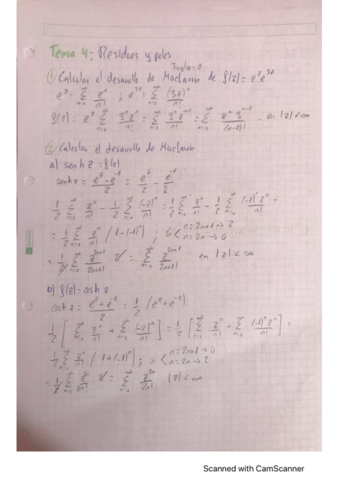 Tema 4: Residuos y polos
Taylor=0
① Calcular el desarrollo de Maclaurin de f(z) = z² e^{3z}
e^z = Σ z^n/n! ; e^{3z} = Σ (3z)^n/n!
f(z) = z² Σ 3^n z^n/n! = Σ 3^n z^{n+2}/n! = Σ z^n 3^{n-2}/(n-2)! en |z|<∞
② Calcular el desarrollo de Maclaurin
a) senh z = f(z)
senh z = (e^z - e^{-z})/2 = e^z/2 - e^{-z}/2
1/2 Σ z^n/n! - 1/2 Σ (-z)^n/n! = 1/2 Σ z^n/n! - 1/2 Σ (-1)^n z^n/n! =
= 1/2 Σ z^n/n! (1-(-1)^n) ; n=2n+1 → 2
n=2n → 0
= 1/2 Σ z^{2n+1}/2n+1! 2 = Σ z^{2n+1}/2n+1! en |z|<∞
b) f(z) = cosh z
cosh z = (e^z + e^{-z})/2 = 1/2 (e^z + e^{-z})
1/2 [Σ z^n/n! + Σ (-z)^n/n!] = 1/2 [Σ z^n/n! + Σ (-1)^n z^n/n!] =
1/2 Σ z^n/n! (1+(-1)^n) ; n=2n+1 → 0
n=2n → 2
= 1/2 Σ z^{2n}/2n! 2 = Σ z^{2n}/2n! |z|<∞
Scanned with CamScanner